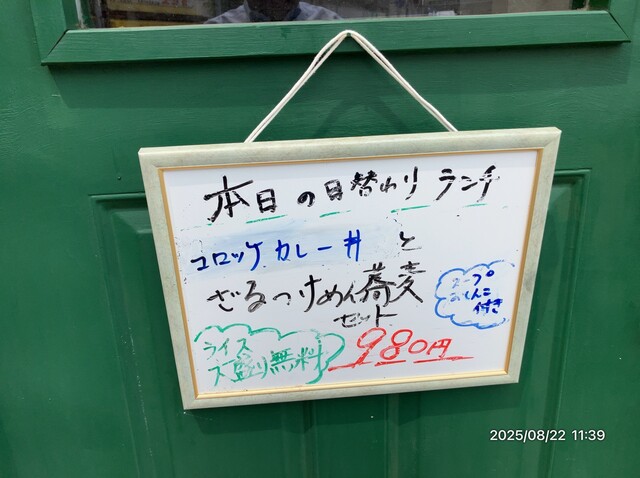 本日の日替わりランチ
コロッケカレー丼と
ざるつけめん蕎麦
セット
スープ
おしんこ
付き
ライス
大盛り無料
980円
2025/08/22 11:39